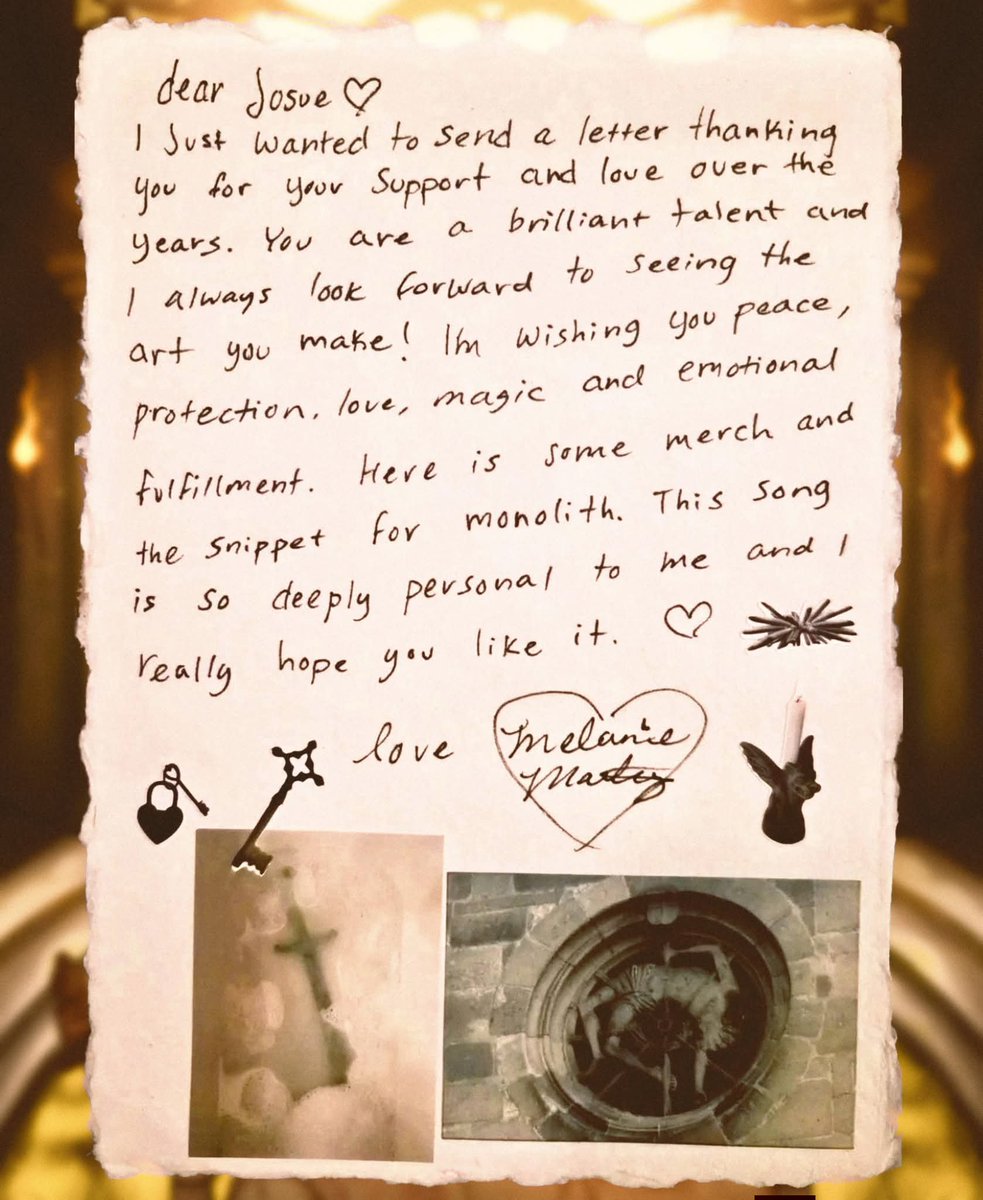 dear Josue
I Just wanted to send a letter thanking
you for your support and love over the
years. You are a brilliant talent and
I always look forward to seeing the
art you make! I'm wishing you peace,
protection, love, magic and emotional
fulfillment. Here is some merch and
the snippet for monolith. This song
is so deeply personal to me and I
really hope you like it.
love Melanie
Martinez